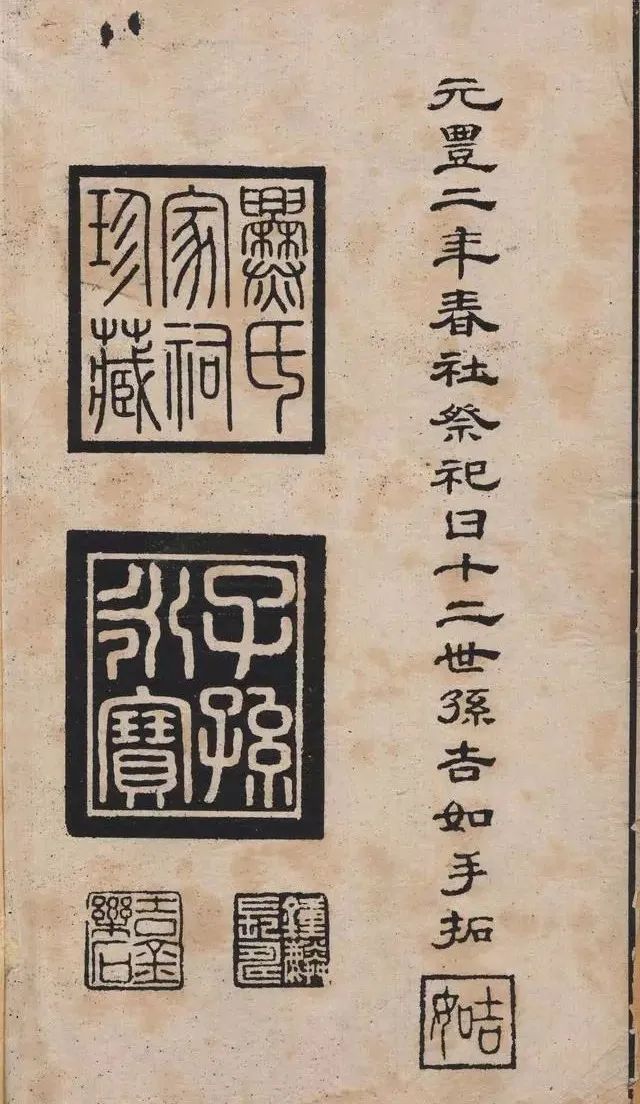 元豊二年春社祭祀日十二世孫吉如手拓
吉如
爨氏
家祠
珍藏
子孫
永寶
吉金
樂石